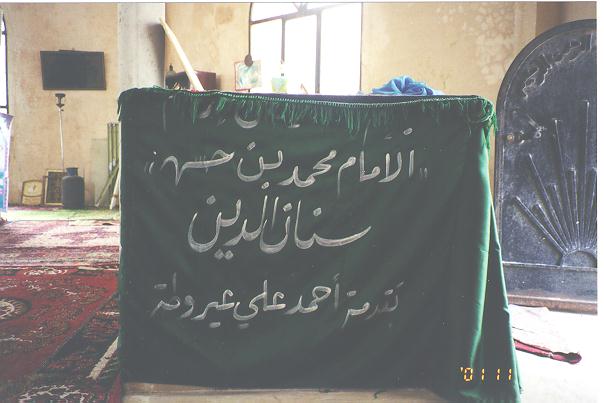 الامام محمد بن حسن
سنان الدين
تقدمة أحمد علي عيروطة
'01 11